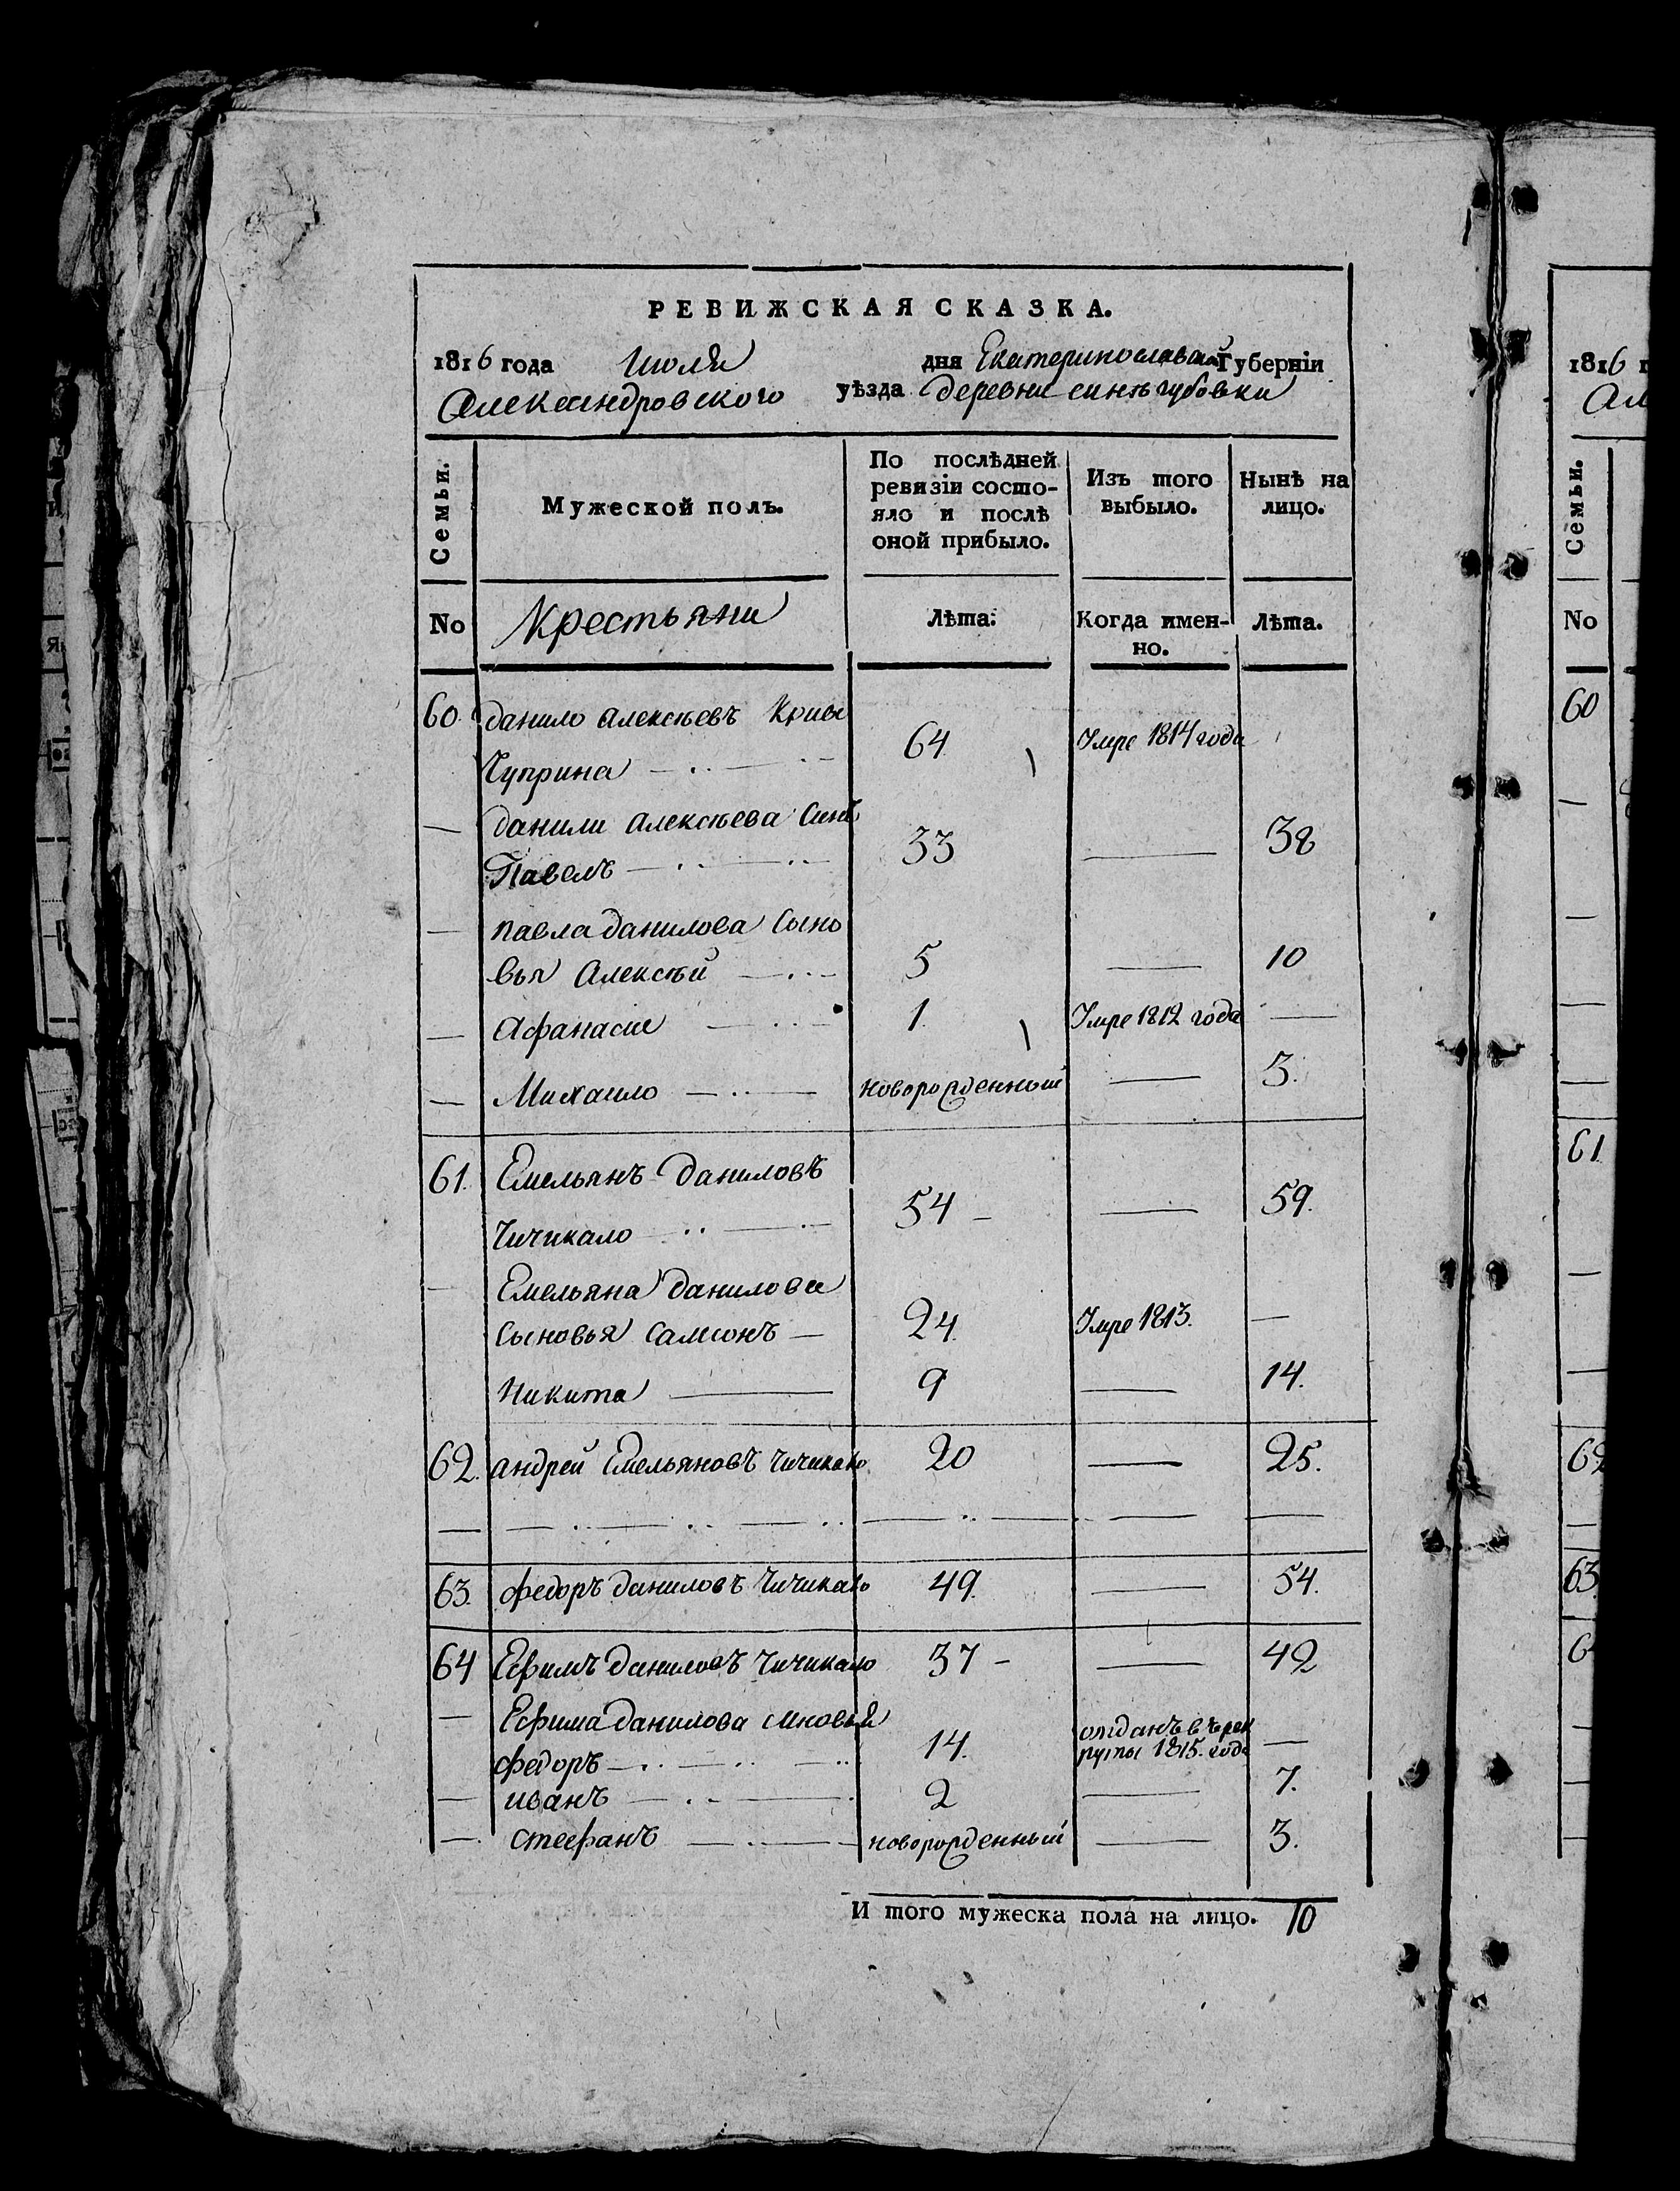 РЕВИЖСКАЯ СКАЗКА.
1816 года Июля дня Екатеринославской Губерніи
Александровского уѣзда деревни синѣгубовки
Семьи. Мужеской полъ. По послѣдней ревизіи состояло и послѣ оной прибыло. Изъ того выбыло. Нынѣ на лицо.
No Крестьяни Лѣта. Когда имен-но. Лѣта.
60. данило алексѣевъ Криво
Чуприна 64. Умре 1814 года
данили алексѣева Синъ
Павелъ 33 38
павла данилова Сыно
вья Алексѣй 5 10
Афанасіи 1. Умре 1812 года
Михаило новорожденный 3.
61. Емельянъ Даниловъ
Чичикало 54 59.
Емельяна Данилова
Сыновья Самсонъ 24. Умре 1813.
Никита 9 14.
62. андрей Емельяновъ Чичикало 20 25.
63. федоръ даниловъ Чичикало 49. 54.
64 Ефимъ даниловъ Чичикало 37 42
Ефима данилова синовья отданъ въ рек
федоръ 14. руты 1815. года
иванъ 2 7.
стефанъ новорожденный 3.
И того мужеска пола на лицо. 10
1816
Ал
Семьи.
No
60
61
62
63
6